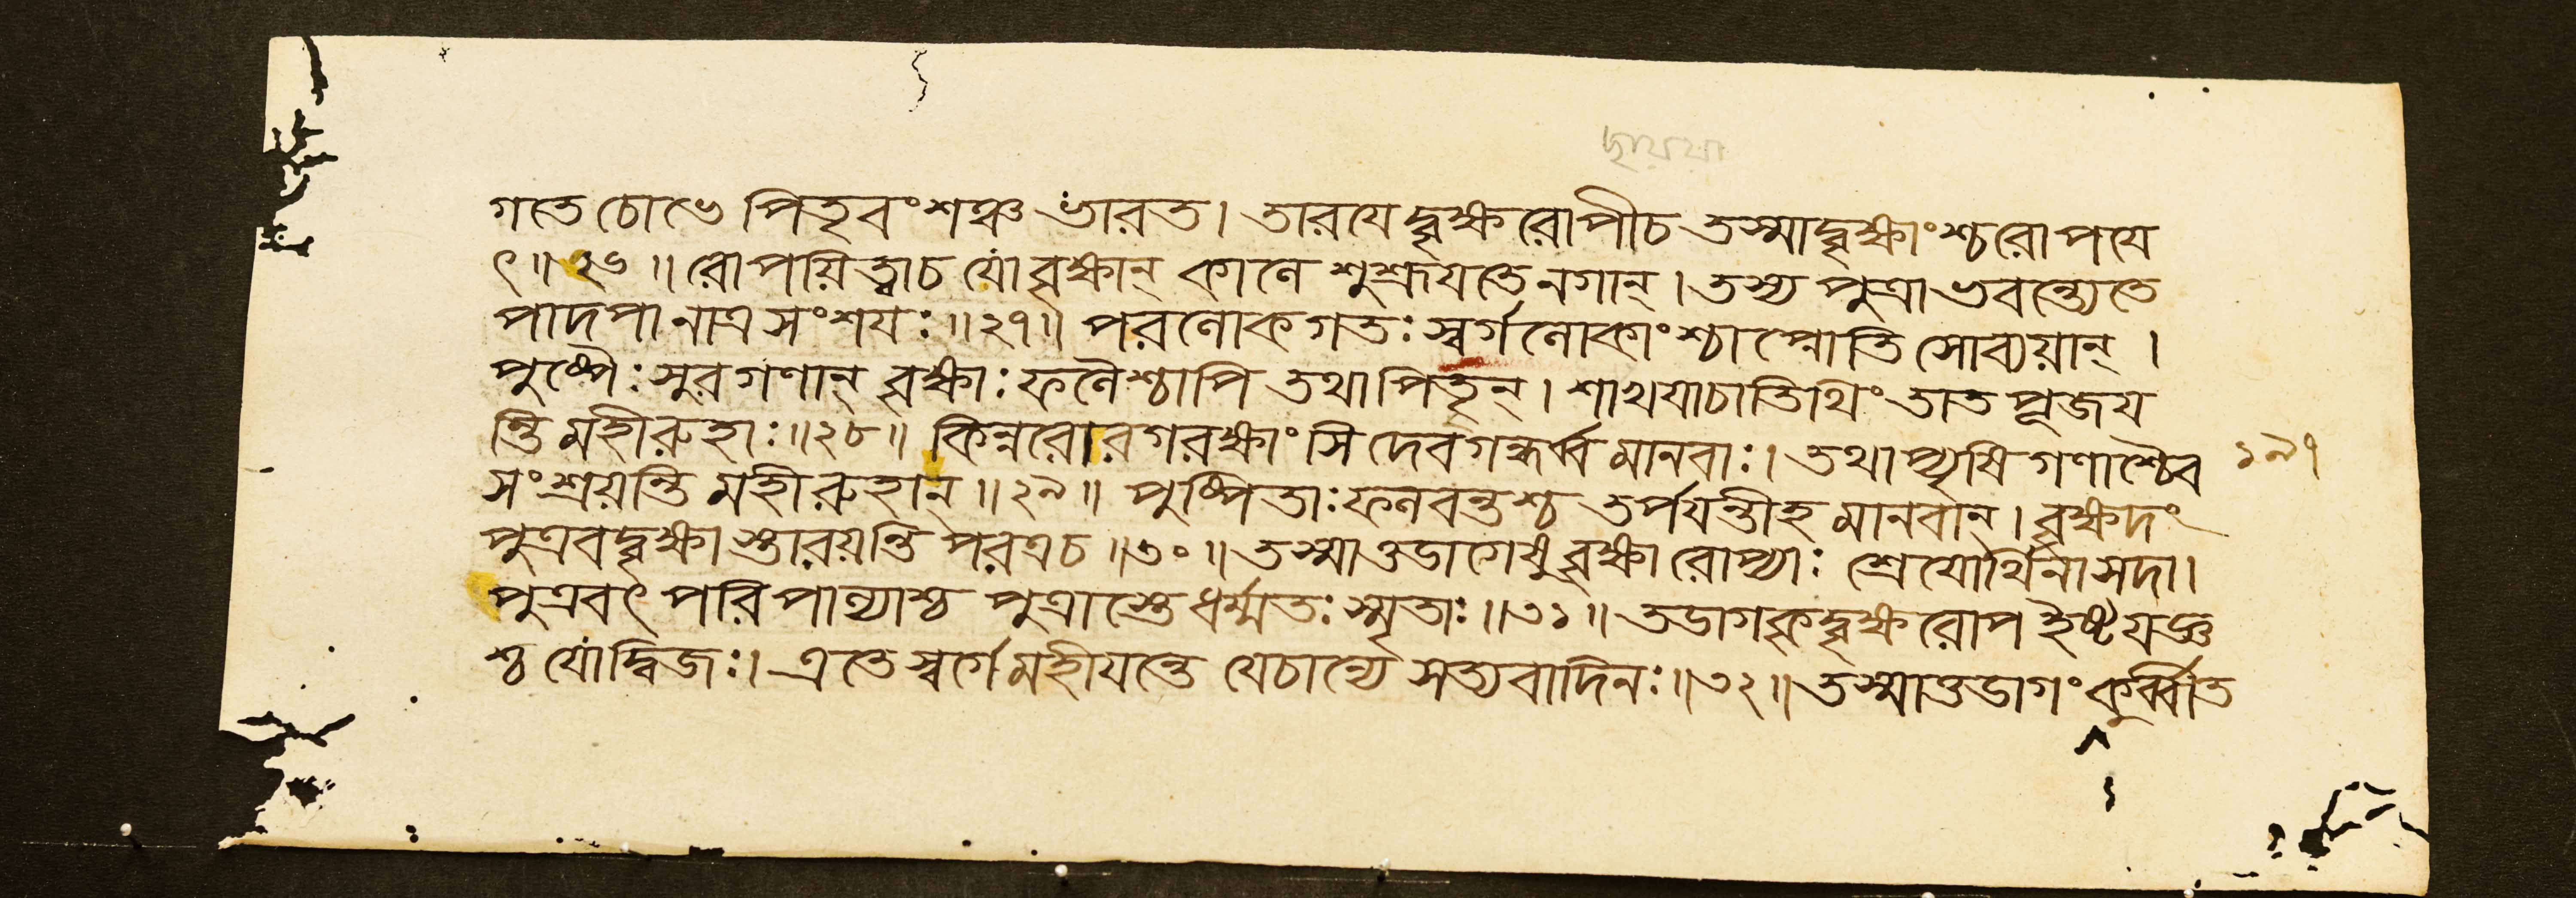 ছায়যা
গতে চোভে পিতৃবংশঞ্চ ভারত। তারযেদ্বৃক্ষরোপীচ তস্মাদ্বৃক্ষাংশ্চরোপযে
ৎ॥২৬॥ রোপয়িত্বাচ যো বৃক্ষান্ কালে শুশ্রূষতে নগান্। তস্য পুত্রা ভবন্ত্যেতে
পাদপা নাত্র সংশযঃ॥২৭॥ পরলোকগতঃ স্বর্গলোকাংশ্চাপ্নোতি সোব্যয়ান্।
পুষ্পৈঃ সুরগণান্ বৃক্ষাঃ ফলৈশ্চাপি তথা পিতৄন্। শাখযাচাতিথিং তাত পূজয
ন্তি মহীরুহাঃ॥২৮॥ কিন্নরোরগরক্ষাংসি দেবগন্ধর্ব্বমানবাঃ। তথাপ্যৃষিগণাশ্চৈব
১৯৭
সংশ্রয়ন্তি মহীরুহান্॥২৯॥ পুষ্পিতাঃ ফলবন্তশ্চ তর্পযন্তীহ মানবান্। বৃক্ষদং
পুত্রবদ্বৃক্ষাস্তারয়ন্তি পরত্রচ॥৩০॥ তস্মাত্তডাগেষু বৃক্ষা রোপ্যাঃ শ্রেযোর্থিনা সদা।
পুত্রবৎ পরিপাল্যাশ্চ পুত্রাস্তে ধর্ম্মতঃ স্মৃতাঃ॥৩১॥ তডাগকৃদ্বৃক্ষরোপ ইষ্টযজ্ঞ
শ্চ যো দ্বিজঃ। এতে স্বর্গে মহীযন্তে যেচান্যে সত্যবাদিনঃ॥৩২॥ তস্মাত্তডাগং কুর্ব্বীত